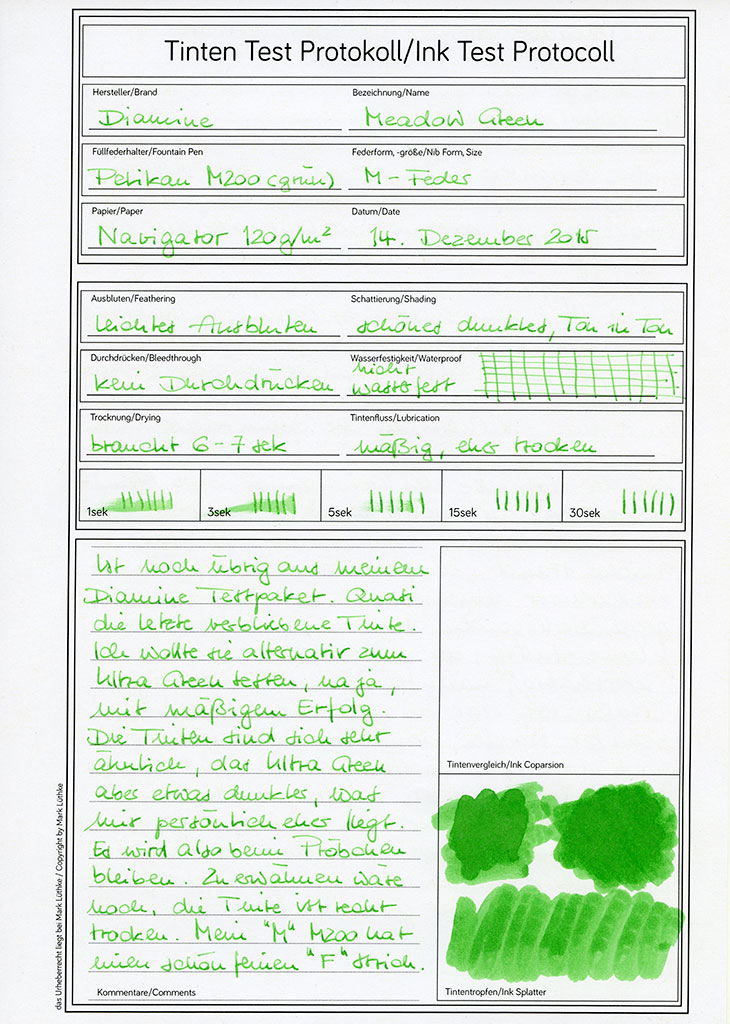 Tinten Test Protokoll/Ink Test Protocoll
Hersteller/Brand
Bezeichnung/Name
Diamine
Meadow Green
Füllfederhalter/Fountain Pen
Federform, -größe/Nib Form, Size
Pelikan M200 (grün)
M - Feder
Papier/Paper
Datum/Date
Navigator 120g/m²
14. Dezember 2015
Ausbluten/Feathering
Schattierung/Shading
leichtes Ausbluten
schönes dunkles, Ton in Ton
Durchdrücken/Bleedthrough
Wasserfestigkeit/Waterproof
kein Durchdrücken
nicht
wasserfest
Trocknung/Drying
Tintenfluss/Lubrication
braucht 6-7 sek
mäßig, eher trocken
1sek
3sek
5sek
15sek
30sek
Ist noch übrig aus meinem
Diamine Testpaket. Quasi
die letzte verbliebene Tinte.
Ich wollte sie alternativ zum
Ultra Green testen, na ja,
mit mäßigem Erfolg.
Die Tinten sind sich sehr
ähnlich, das Ultra Green
aber etwas dunkler, was
mir persönlich eher liegt.
Es wird also beim Pröbchen
bleiben. Zu erwähnen wäre
noch, die Tinte ist recht
trocken. Mein "M" M200 hat
einen schön feinen "F" Strich.
Kommentare/Comments
Tintenvergleich/Ink Coparsion
Tintentropfen/Ink Splatter
das Urheberrecht liegt bei Mark Lüthke / Copyright by Mark Lüthke